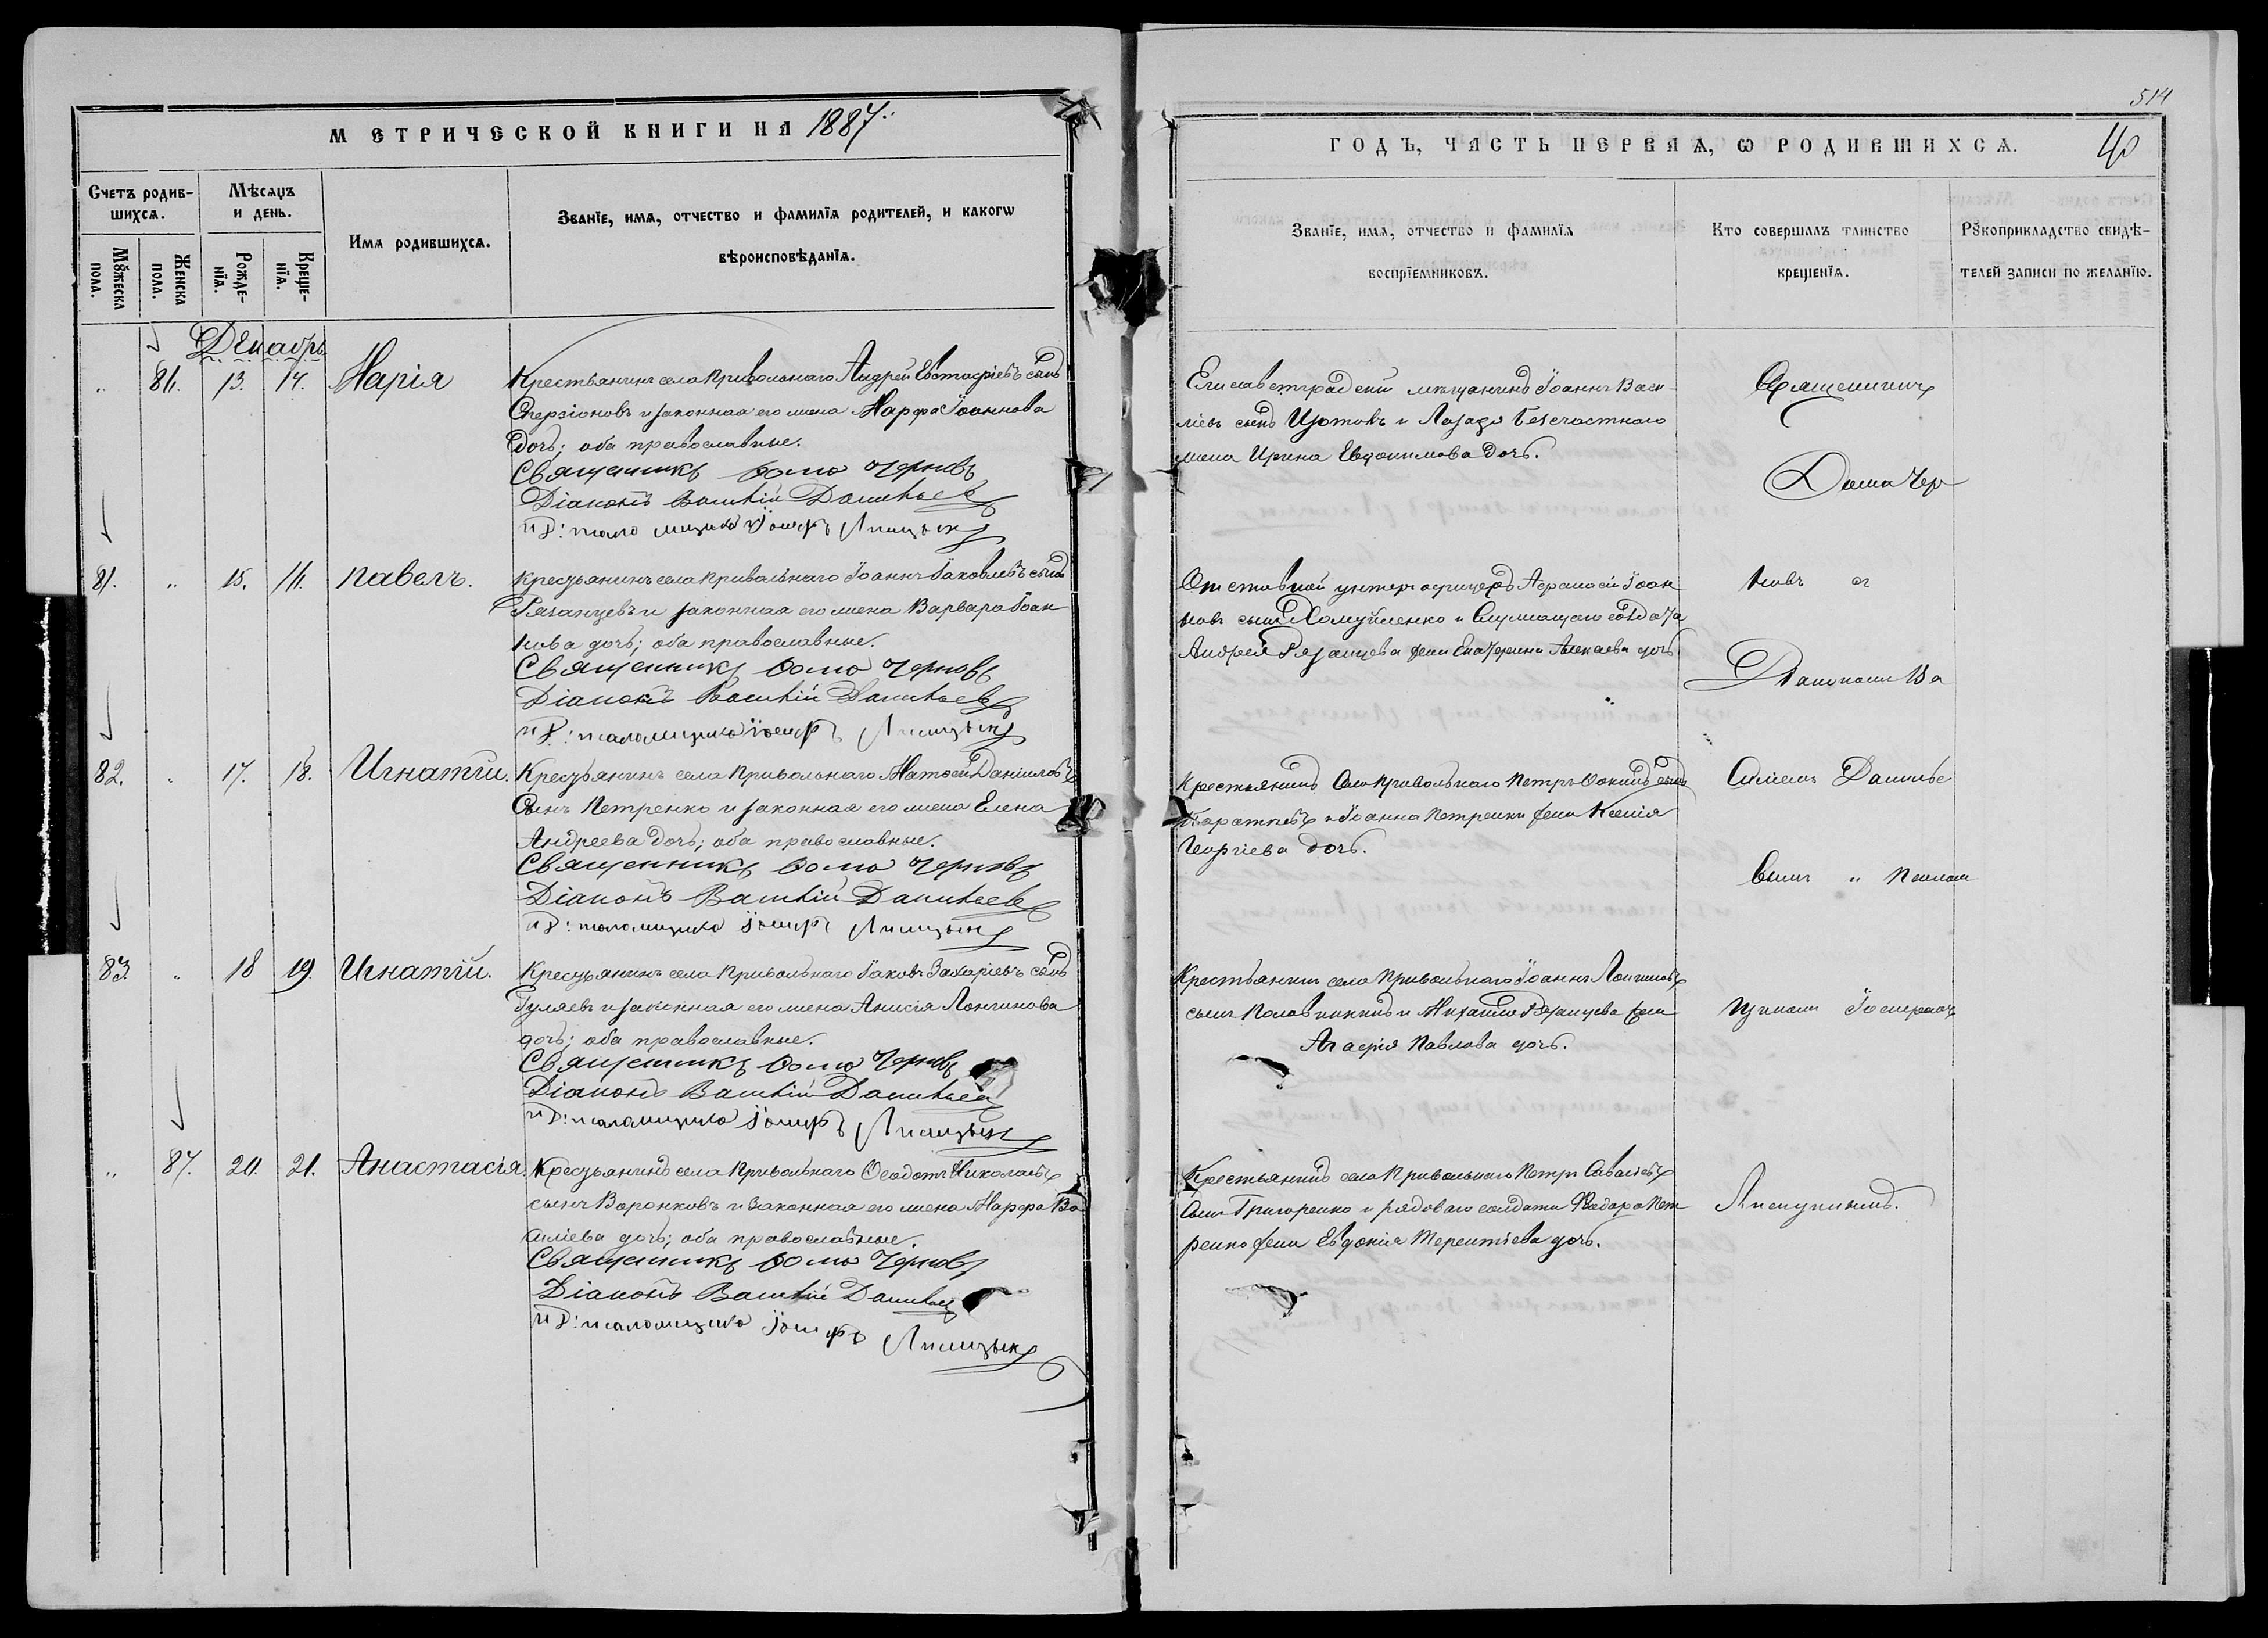 МЕТРИЧЕСКОЙ КНИГИ НА 1887.
Счетъ родив-
шихсѧ.
Мѣсѧцъ
и день.
Имѧ родившихсѧ.
Званїе, имѧ, отчество и фамилїѧ родителей, и какогѡ
вѣроисповѣданїѧ.
Мꙋжеска
пола.
Женска
пола.
Рожде-
нїѧ.
Креще-
нїѧ.
Декабрь
" 86. 13. 14. Марія
Крестьянинъ села Привольнаго Андрей Евстафіевъ сынъ
и законная его жена Марфа Іоаннова
дочь; оба православные.
Священникъ Ѳома Черновъ
Діаконъ Василій Данильевъ
и д: псаломщика Іосифъ Лисицынъ
81. " 15. 16. Павелъ.
Крестьянинъ села Привольнаго Іоаннъ Іаковлевъ сынъ
Рязанцевъ и законная его жена Варвара Іоан-
нова дочь; оба православные.
Священникъ Ѳома Черновъ
Діаконъ Василій Данильевъ
и д: псаломщика Іосифъ Лисицынъ
82. " 17. 18. Игнатій.
Крестьянинъ села Привольнаго Матѳей Даніиловъ
Сынъ Петренко и законная его жена Елена
Андреева дочь; оба православные.
Священникъ Ѳома Черновъ
Діаконъ Василій Данильевъ
и д: псаломщика Іосифъ Лисицынъ
83. " 18 19. Игнатій.
Крестьянинъ села Привольнаго Іаковъ Захаріевъ сынъ
Гуляевъ и законная его жена Анисія Лонгинова
дочь; оба православные.
Священникъ Ѳома Черновъ
Діаконъ Василій Данильевъ
и д: псаломщика Іосифъ Лисицынъ
" 87. 20. 21. Анастасія.
Крестьянинъ села Привольнаго Ѳеодотъ Николаевъ
сынъ Воронковъ и законная его жена Марфа Ва
силіева дочь; оба православные.
Священникъ Ѳома Черновъ
Діаконъ Василій Данильевъ
и д: псаломщика Іосифъ Лисицынъ
514
ГОДЪ, ЧАСТЬ ПЕРВАѦ, Ѡ РОДИВШИХСѦ. 40
Званїе, имѧ, отчество и фамилїѧ
воспрїемниковъ.
Кто совершалъ таинство
крещенїѧ.
Рꙋкоприкладство свидѣ-
телей записи по желанїю.
Елисаветградскій мѣщанинъ Іоаннъ Васи-
ліевъ сынъ и Лазаря Безсчастнаго
жена Ирина Евдокимова дочь.
Священникъ
Ѳома Чер
Отставной унтеръ офицеръ Аѳанасій Іоан
новъ сынъ Хомуйленко и Служащаго солдата
Андрея Рязанцева жена Екатерина Алексаева дочь.
новъ съ
Діакономъ Ва
Крестьянинъ села Привольнаго Петръ Ѳокинъ сынъ
и Іоанна Петренки жена Ксенія
Георгіева дочь.
силіемъ Данилье
вымъ и Псалом
Крестьянинъ села Привольнаго Іоаннъ Лонгиновъ
сынъ Половинкинъ и Михаила Рязанцева жена
Агафія Павлова дочь.
щикомъ Іосифомъ
Крестьянинъ села Привольнаго Петръ Саваліевъ
Сынъ Григоренко и рядоваго солдата Ѳеодора Пет
ренко жена Евдокія Терентіева дочь.
Лисицинымъ.